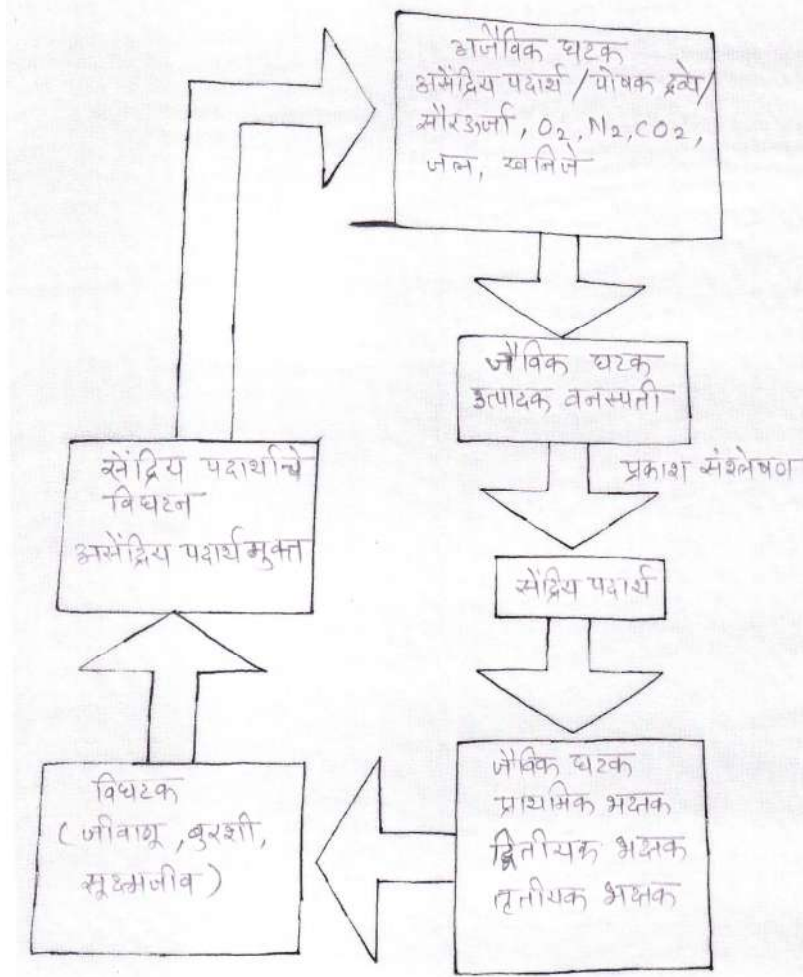 अजैविक घटक
असेंद्रिय पदार्थ / पोषक द्रव्ये/
सौरऊर्जा, O2, N2, CO2,
जल, खनिजे
जैविक घटक
उत्पादक वनस्पती
प्रकाश संश्लेषण
सेंद्रिय पदार्थ
जैविक घटक
प्राथमिक भक्षक
द्वितीयक भक्षक
तृतीयक भक्षक
विघटक
(जीवाणू, बुरशी,
सूक्ष्मजीव)
सेंद्रिय पदार्थाचे
विघटन
असेंद्रिय पदार्थ मुक्त